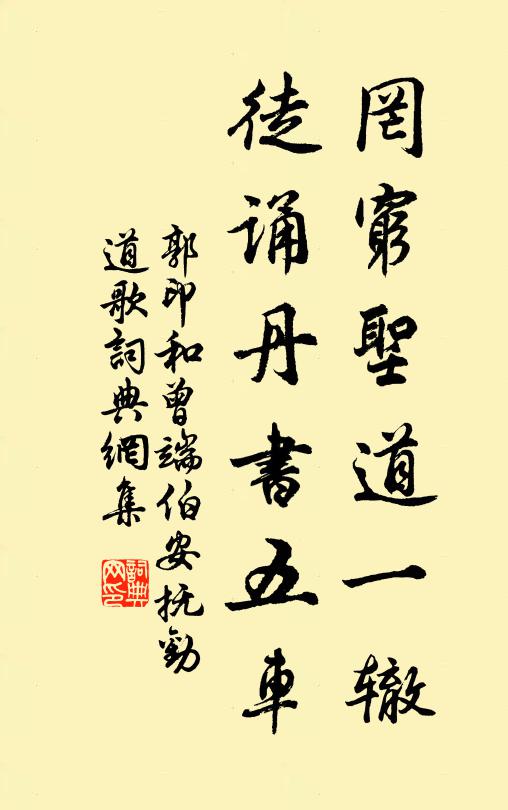 罔窮聖道一辙
徒誦丹書五車
郭印和曾端伯安抚勸
道歌詞典網集
詞典
网印